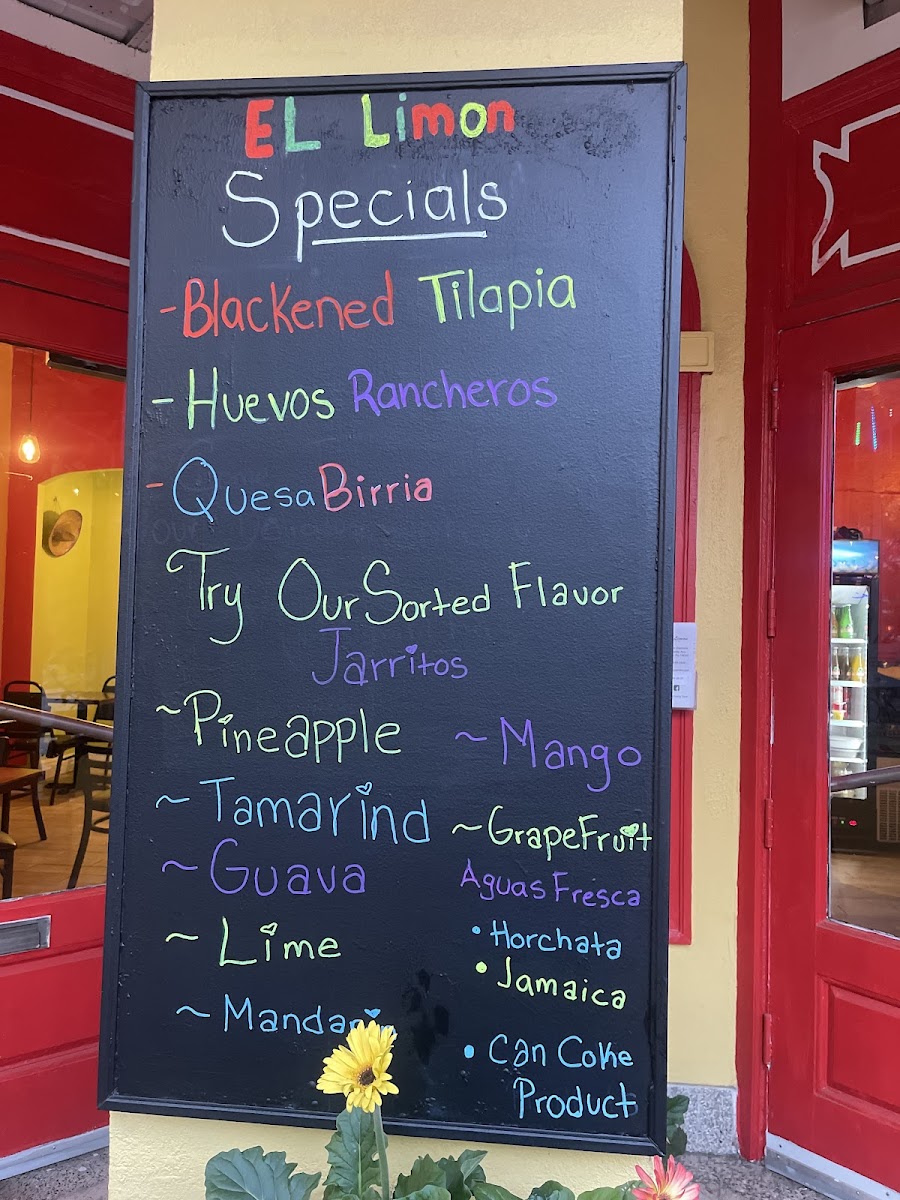 EL Limon
Specials
-Blackened Tilapia
-Huevos Rancheros
-QuesaBirria
~Try Our Sorted Flavor
Jarritos
~Pineapple
~Tamarind
~Guava
~Lime
~Mandarin
~Mango
~GrapeFruit
Aguas Fresca
•Horchata
•Jamaica
•Can Coke
Product